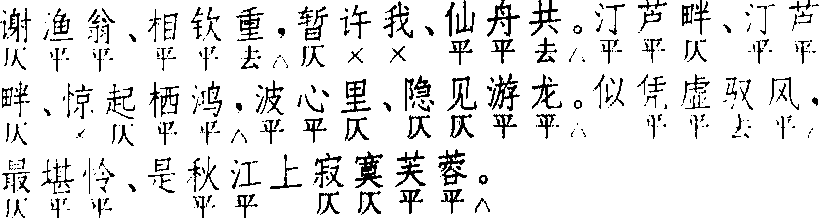 谢渔翁、相钦重，暂许我、仙舟共。汀芦畔、汀芦
仄平平 平平去△仄×× 平平去△平平仄 平平
畔、惊起栖鸿，波心里、隐见游龙。似凭虚驭风，
仄 ×仄平平△平平仄 仄仄平平△ 平平去平△
最堪怜、是秋江上寂寞芙蓉。
仄平平 平平 仄仄平平△